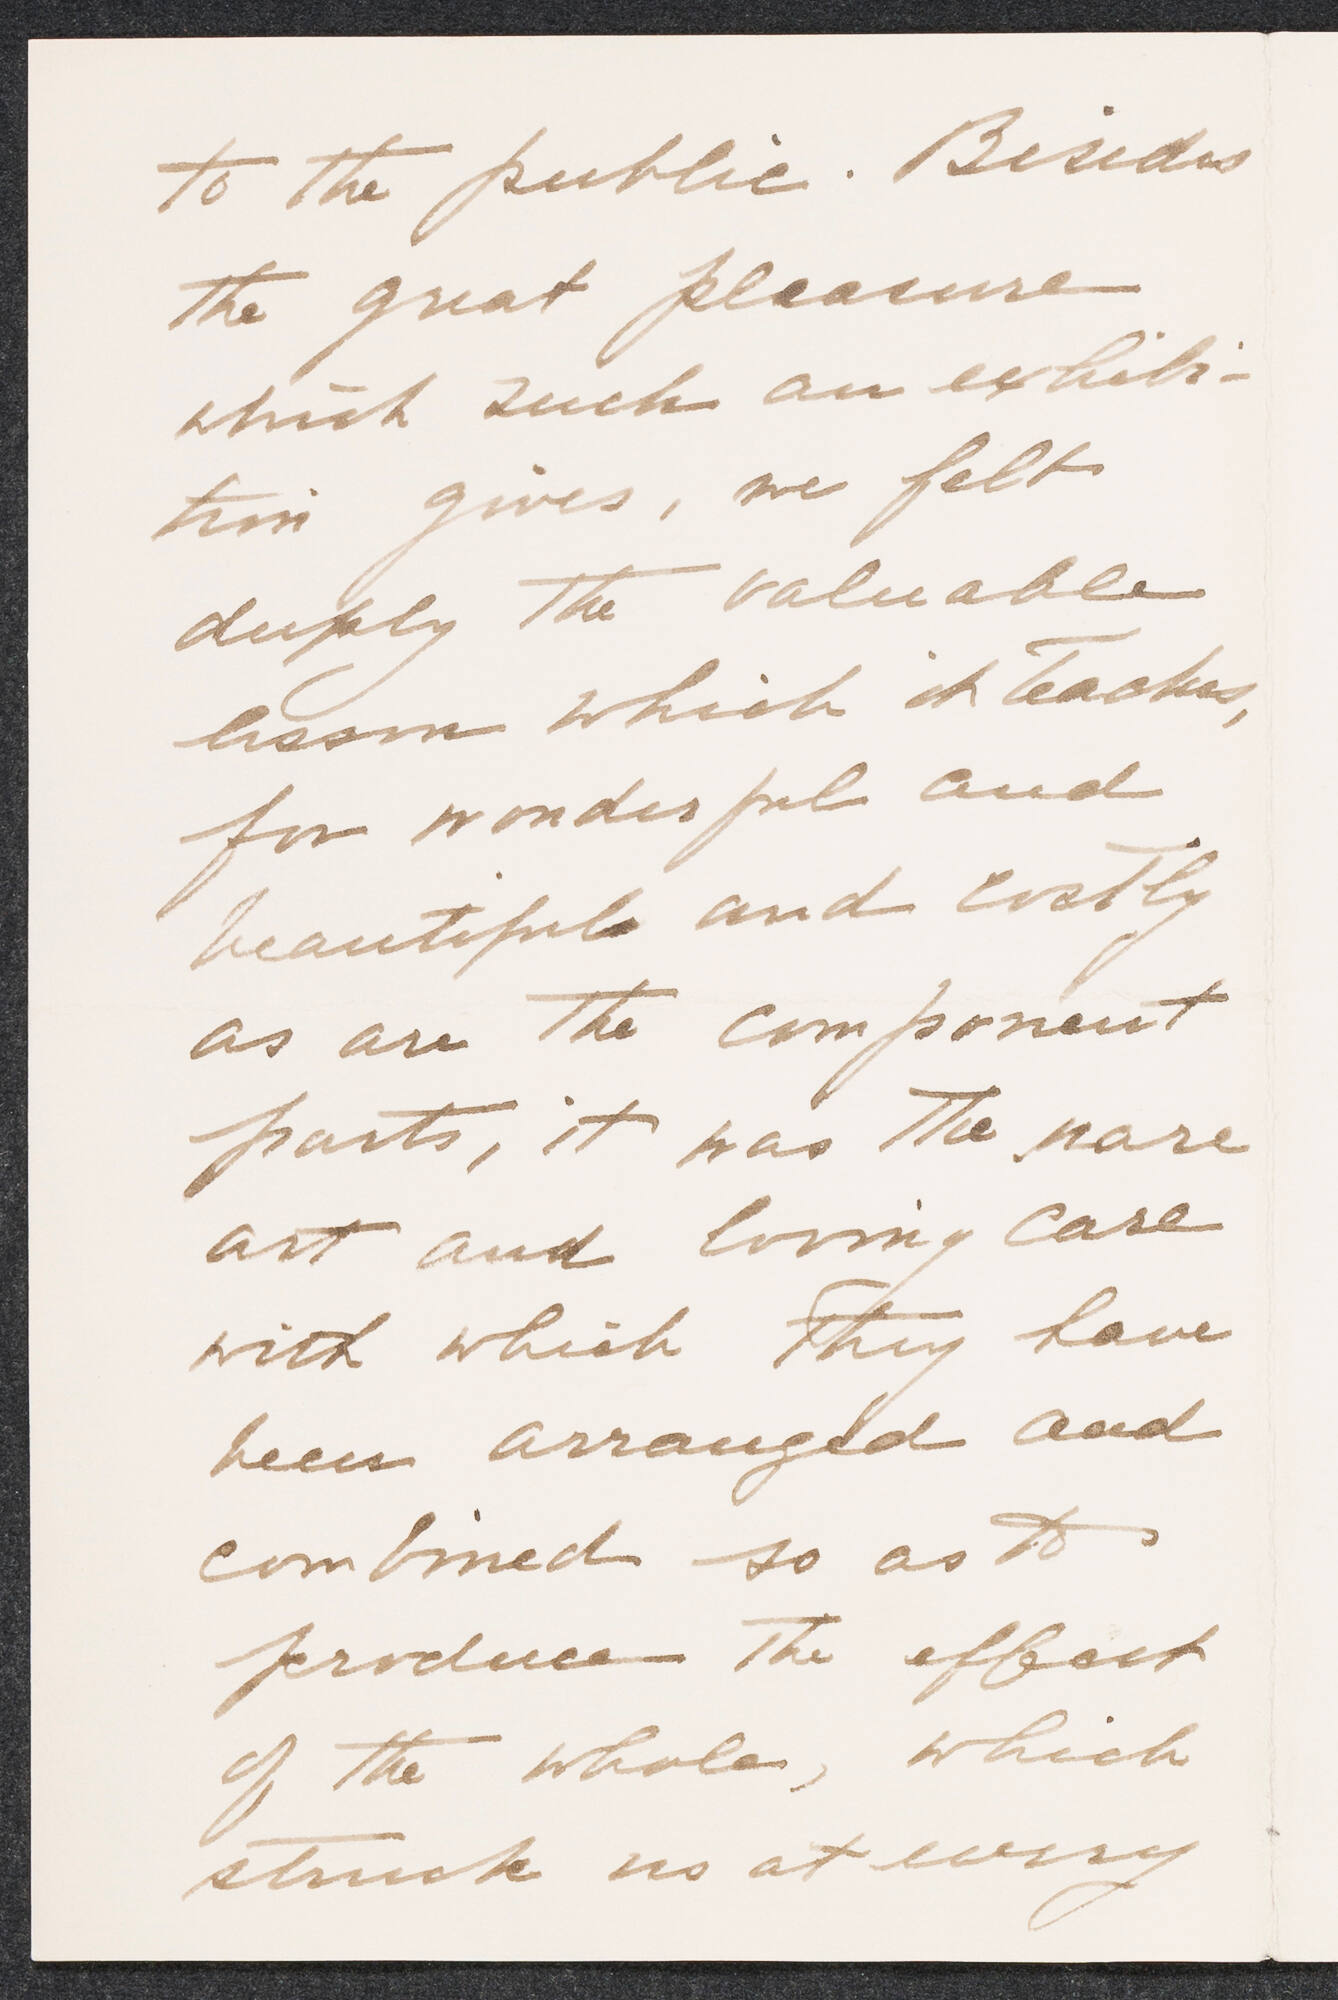 to the public. Besides
the great pleasure
which such an exhibi-
tion gives, we felt
deeply the valuable
lesson which it teaches,
for wonderful and
beautiful and costly
as are the component
parts, it was the rare
art and loving care
with which they have
been arranged and
combined so as to
produce the effect
of the whole, which
struck us at every